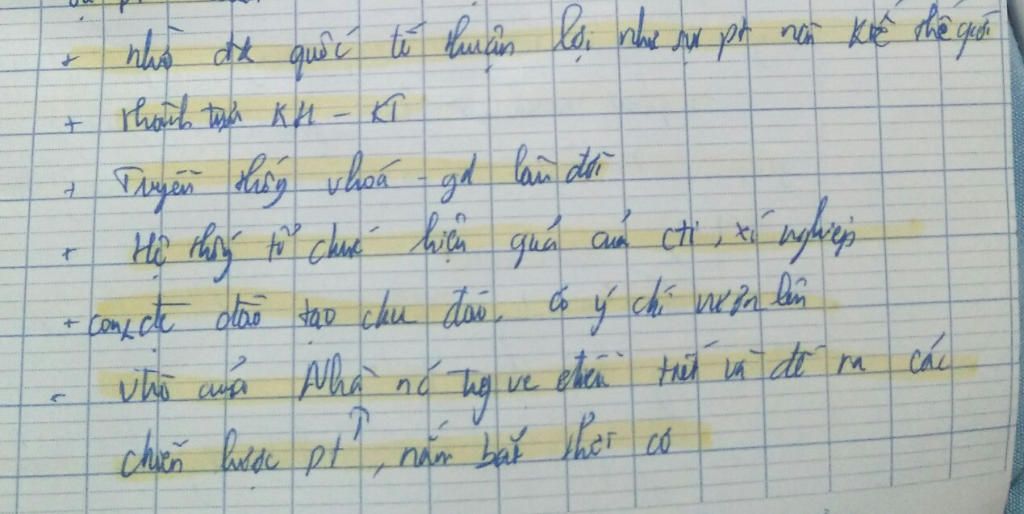 + nhờ đk quốc tế thuận lợi như sự pt nền Ktế thế giới
+ thành tựu KH - KT
+ Truyền thống vhoá - gd lâu đời
+ Hệ thống tổ chức hiệu quả của cti, xí nghiệp
+ con đc đào tạo chu đáo, có ý chí vươn lên
- vtrò của Nhà nc tg vc điều tiết và đề ra các
chiến lược pt, nắm bắt thời cơ